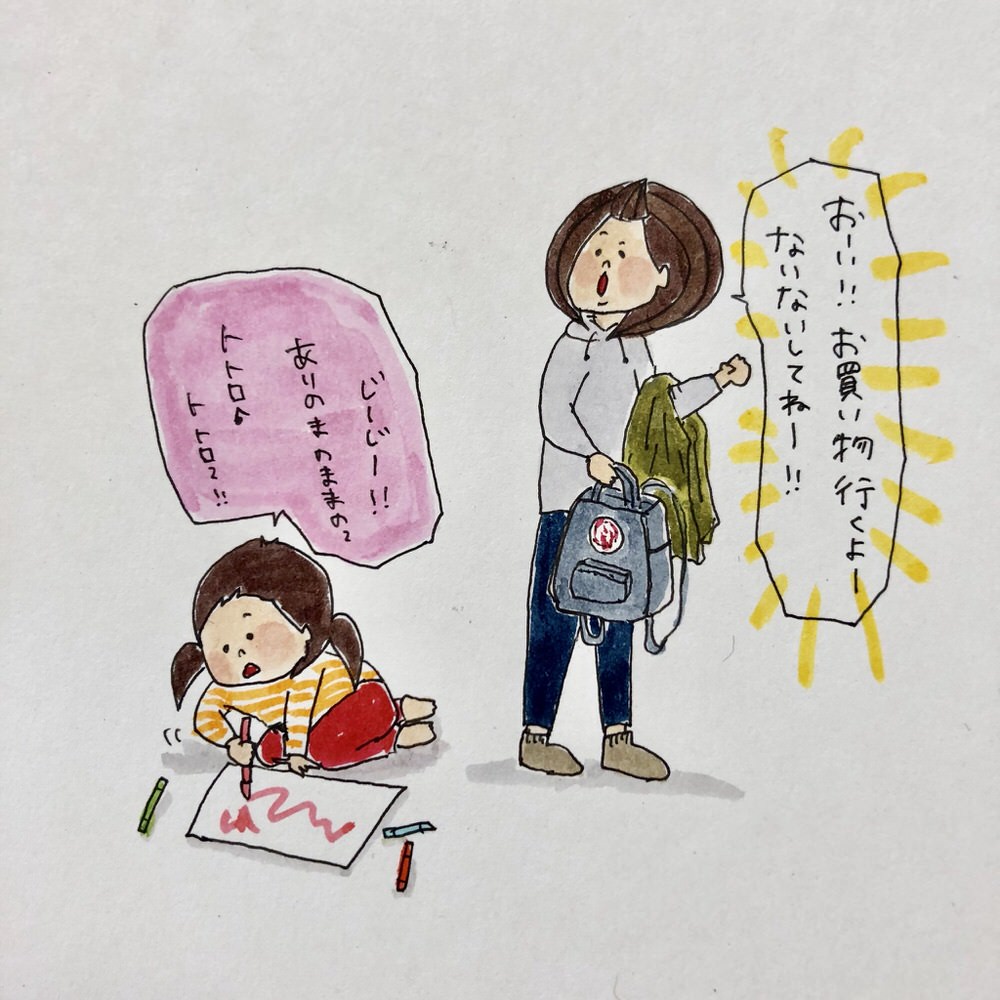 おーい!! お買い物 行くよー
ないないしてねー!!
じーじー!!
ありのまのままの〜
トトロ♪
トトロ〜!!